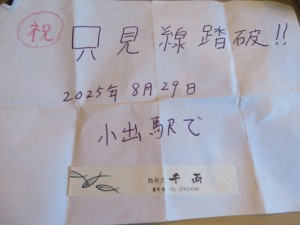 祝 只見線踏破!!
2025年8月29日
小出駅で
千両